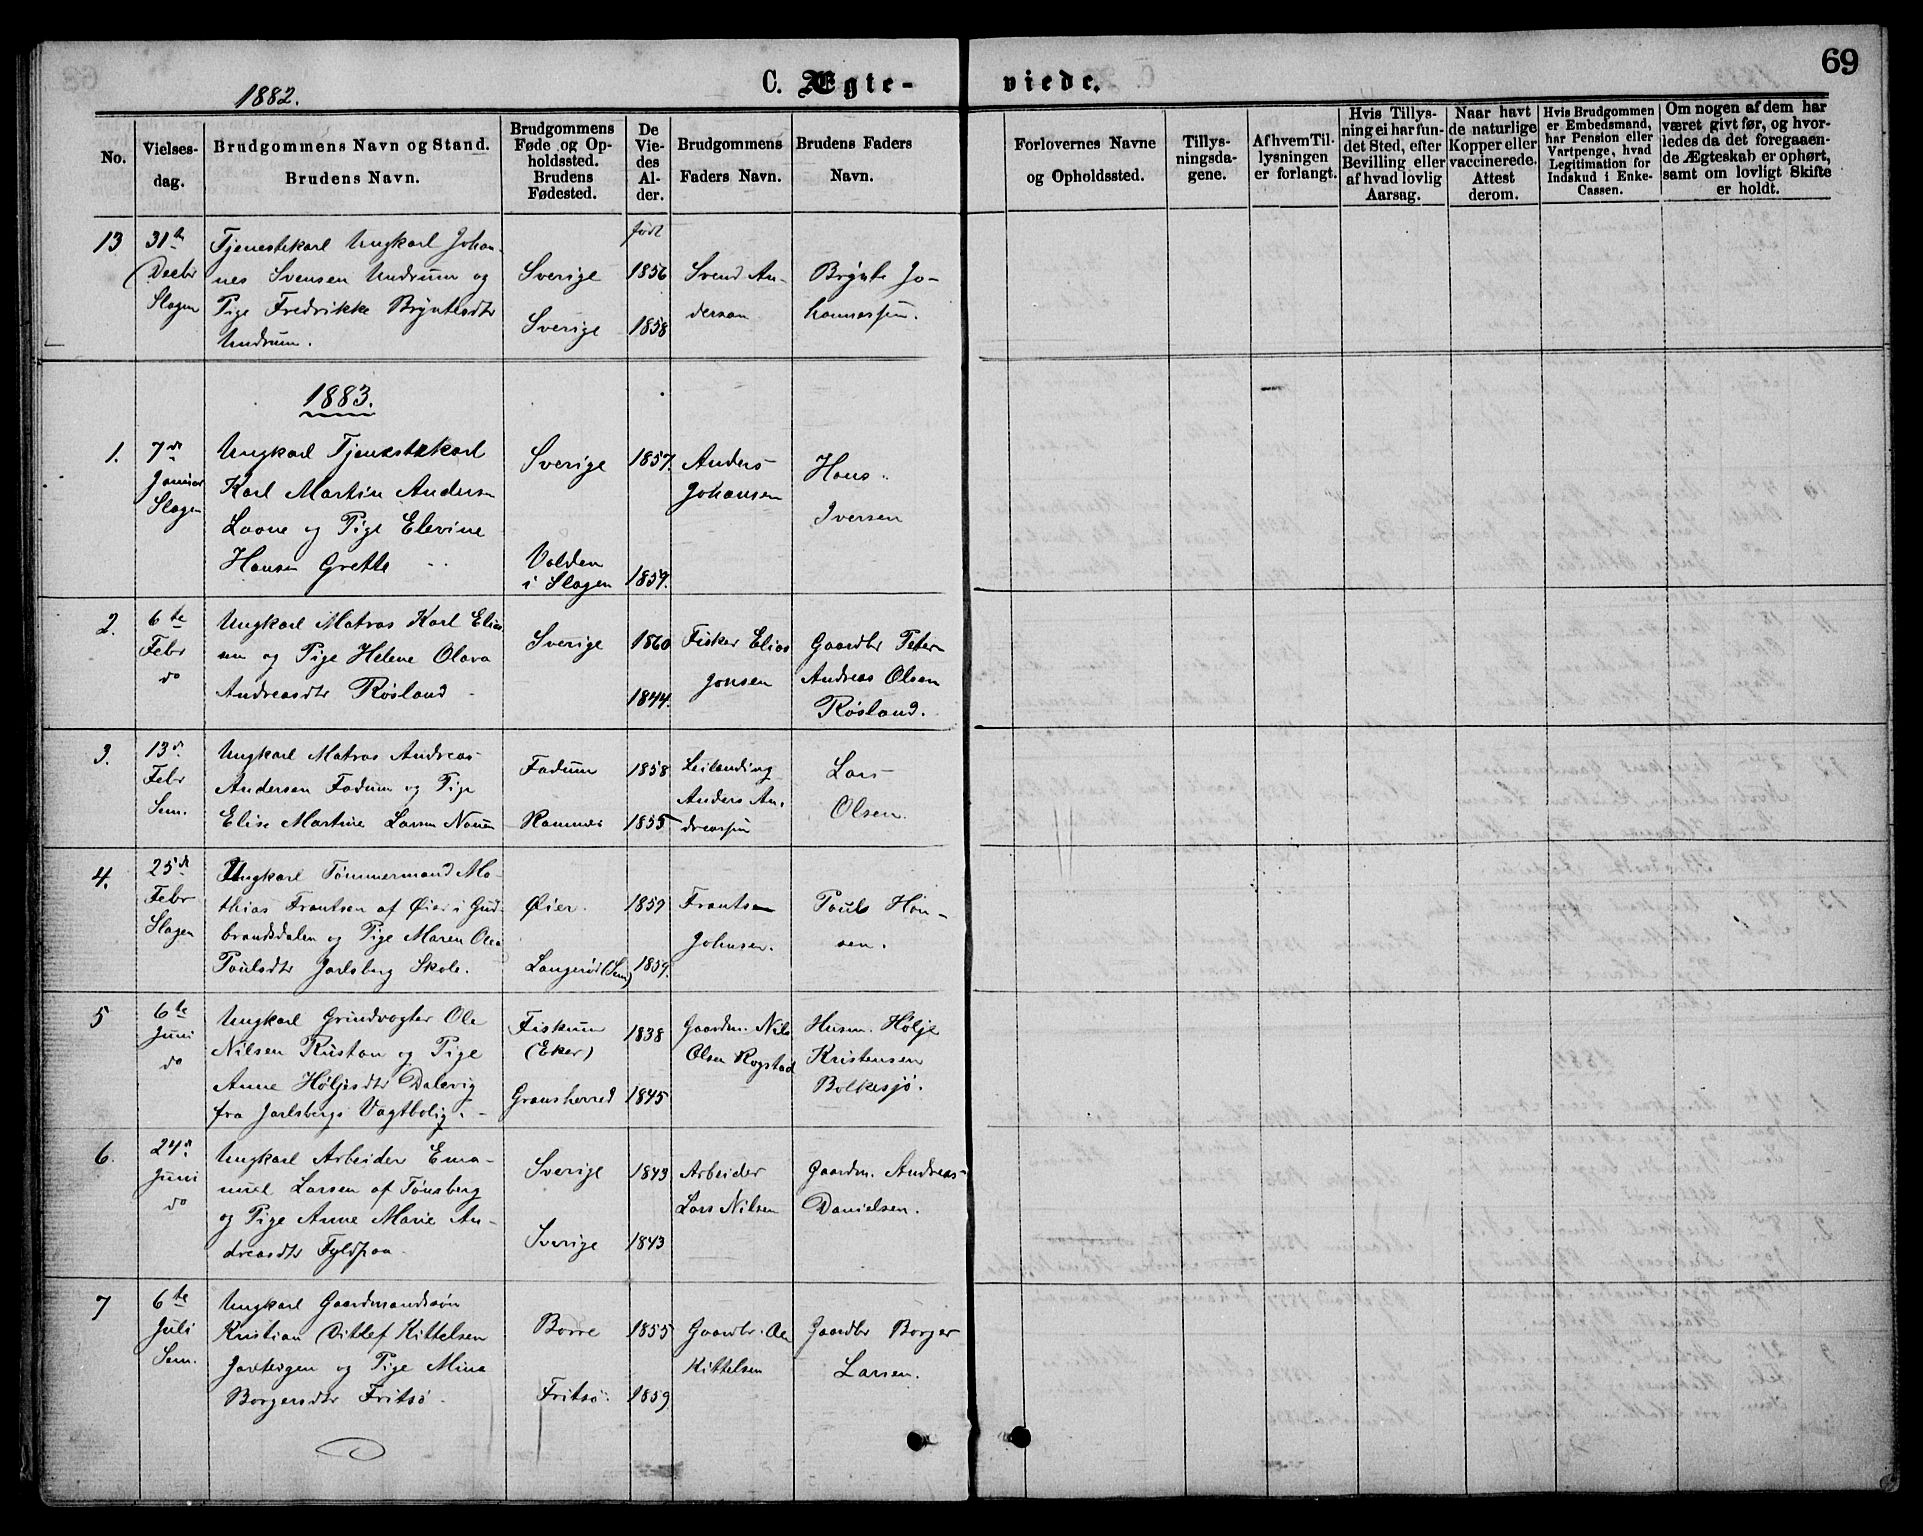 69
1882.
C. Ægte-
viede.
No.
Vielses-
dag.
Brudgommens Navn og Stand.
Brudens Navn.
Brudgommens
Føde og Op-
holdssted.
Brudens
Fødested.
De
Vie-
des
Al-
der.
Brudgommens
Faders Navn.
Brudens Faders
Navn.
Forlovernes Navne
og Opholdssted.
Tillys-
ningsda-
gene.
Af hvem Til-
lysningen
er forlangt.
Hvis Tillys-
ning ei har fun-
det Sted, efter
Bevilling eller
af hvad lovlig
Aarsag.
Naar havt
de naturlige
Kopper eller
vaccinerede.
Attest
derom.
Hvis Brudgommen
er Embedsmand,
har Pension eller
Vartpenge, hvad
Legitimation for
Indskud i Enke-
Cassen.
Om nogen af dem har
været givt før, og hvor-
ledes da det foregaaen-
de Ægteskab er ophørt,
samt om lovligt Skifte
er holdt.
13
31te
Decbr
Slagen
Tjenestekarl Ungkarl Johan-
nes Svensen Undrum og
Pige Fredrikke Bryntesdtr
Undrum.
Sverige
Sverige
født
1856
1858
Svend An-
derson
Brynte Jo-
hannessen.
1883.
1.
7de
Januar
Slagen
Ungkarl Tjenestekarl
Karl Martin Andersen
Laone og Pige Elevine
Hansen Grette
Sverige
Volden
i Slagen
1857.
1859.
Anders
Johansen
Hans
Iversen
2.
6te
Febr
do
Ungkarl Matros Karl Elias
sen og Pige Helene Olava
Andreasdtr Røsland
Sverige
1860
1844.
Fisker Elias
Jonsen
Gaardbr Peter
Andreas Olsen
Røsland.
3.
13de
Febr
Sem.
Ungkarl Matros Andreas
Andersen Fadum og Pige
Elise Martine Larsen
Fadum
Ramnes
1858
1855
Leilending
Anders An-
dreassen
Lars
Olsen.
4.
25de
Febr
Slagen
Ungkarl Tømmermand Ma-
thias Frantsen af Øier i Gud-
brandsdalen og Pige Maren Olea
Poulsdtr Jarlsberg Skole.
Øier.
Langerød (Sem)
1857
1859.
Frantsen
Johnsen.
Pouls Han-
sen.
5
6te
Juni
do
Ungkarl Grindvogter Ole
Nilsen Rustan og Pige
Anne Høljesdtr Dalevig
fra Jarlsbergs Vagtbolig.
Fiskum
(Eker)
Gransherred
1838
1845
Gaardm. Nils
Olsen Rogstad
Husm. Hølje
Kristensen
Bolkesjø.
6.
24de
Juni
do
Ungkarl Arbeider Ema-
nuel Larsen af Tønsberg
og Pige Anne Marie An-
dreasdtr Fyldpaa
Sverige
Sverige
1843
1843
Arbeider
Lars Nilsen
Gaardm. Andreas
Danielsen.
7
6te
Juli
Sem.
Ungkarl Gaardmandssøn
Kristian Ditlef Kittelsen
Jarteigen og Pige Mina
Borgersdtr Fritsø
Borre
Fritsø.
1855
1859
Gaardbr. Ole
Kittelsen
Gaardbr Borger
Larsen.